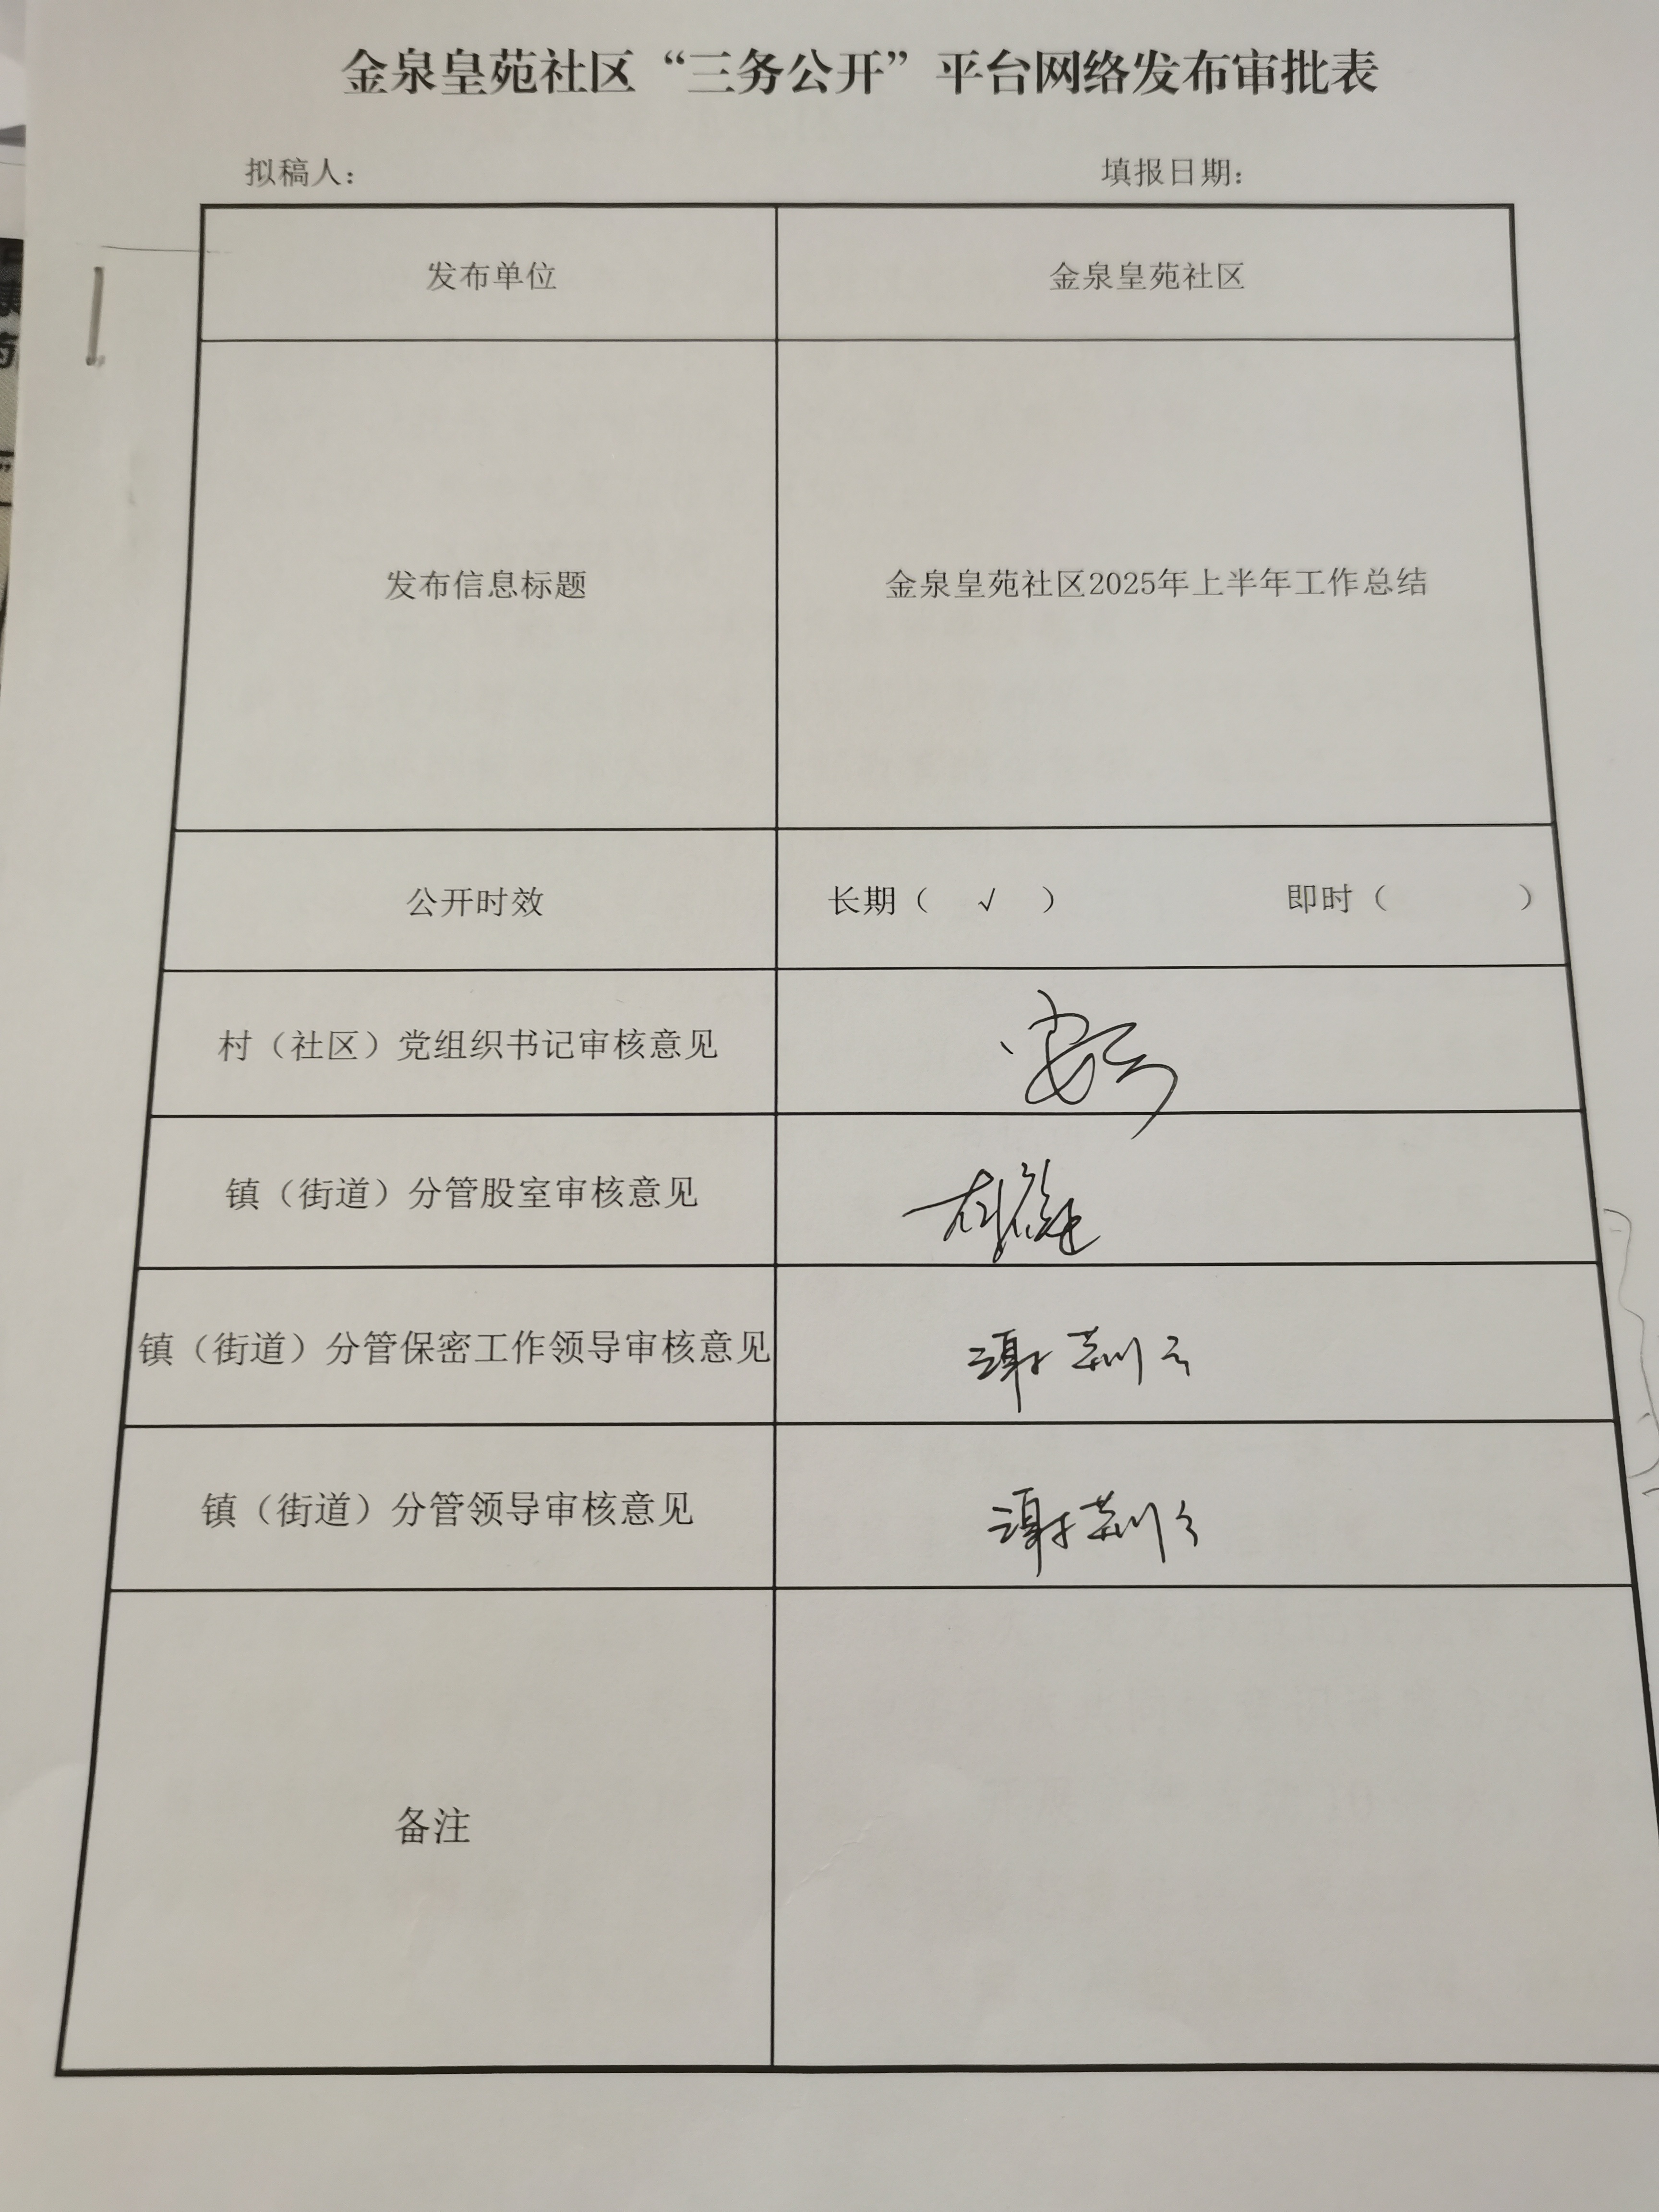 金泉皇苑社区“三务公开”平台网络发布审批表
拟稿人： 填报日期：
发布单位 金泉皇苑社区
发布信息标题 金泉皇苑社区2025年上半年工作总结
公开时效 长期（ √ ） 即时（ ）
村（社区）党组织书记审核意见
镇（街道）分管股室审核意见
镇（街道）分管保密工作领导审核意见 谢荆云
镇（街道）分管领导审核意见 谢荆云
备注